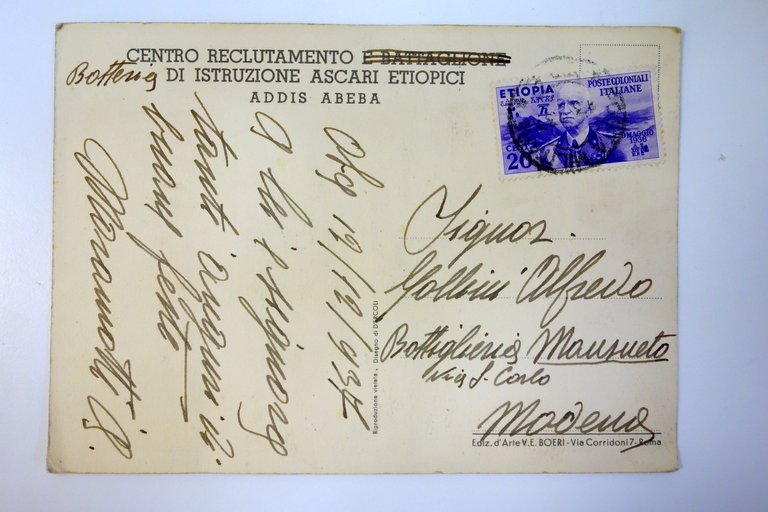 CENTRO RECLUTAMENTO E BATTAGLIONE
Batteria DI ISTRUZIONE ASCARI ETIOPICI
ADDIS ABEBA
19/12/937
a lei e signora
tanti auguri di
buone feste
Maramotti G.
Riproduzione vietata - Disegno di D'ERCOLI
ETIOPIA
POSTE COLONIALI
ITALIANE
CENT
20
9 MAGGIO
1936
Signor
Gollini Alfredo
Bottiglieria Mansueto
Via S. Carlo
Modena
Ediz. d'Arte V. E. BOERI - Via Corridoni 7 - Roma